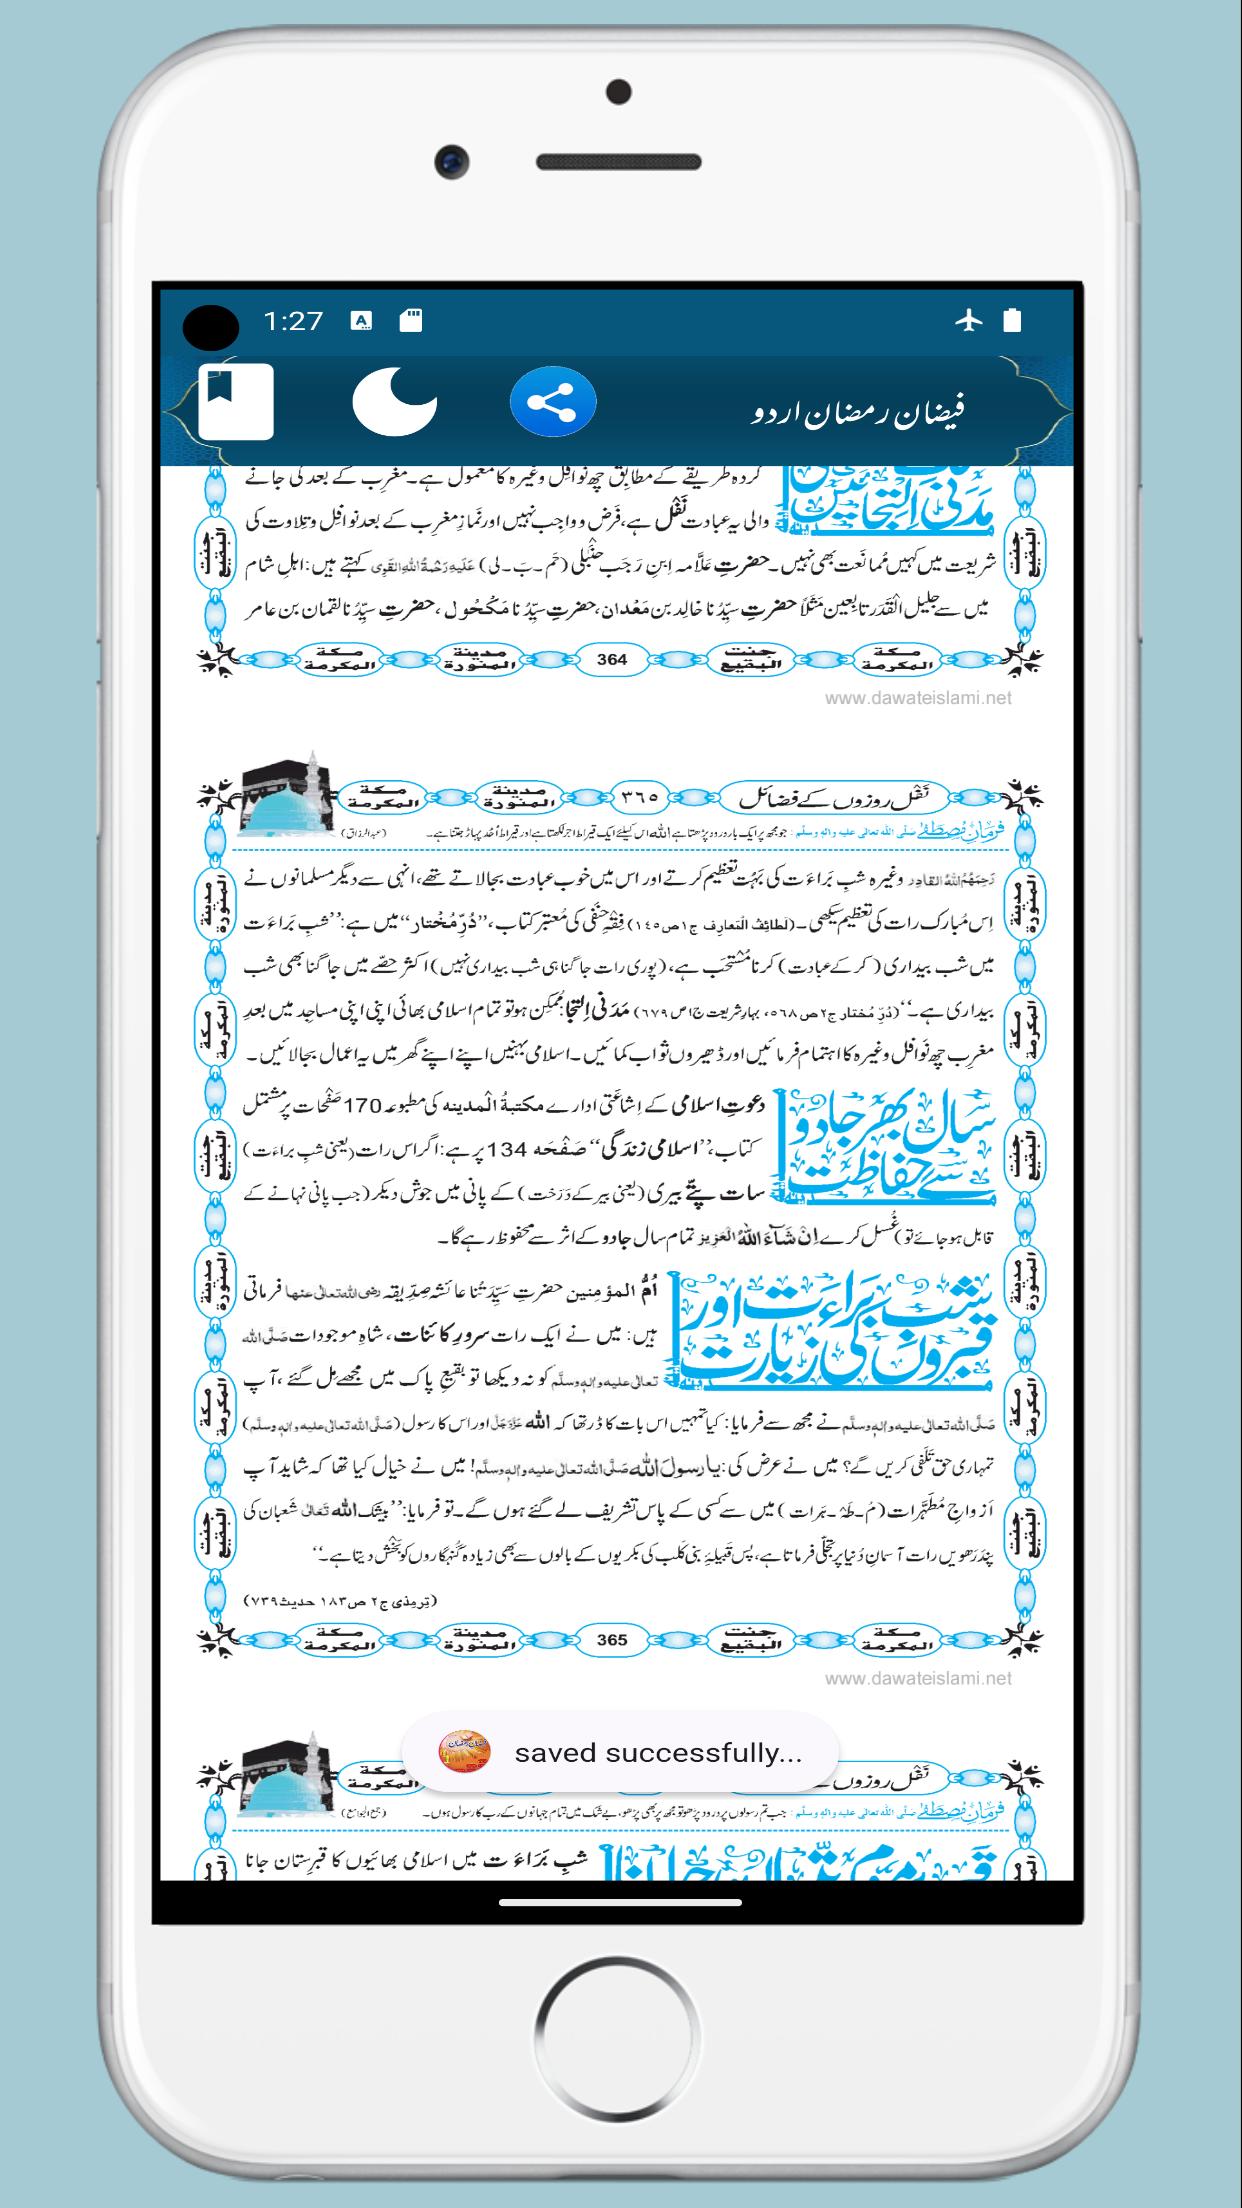 1:27
فیضان رمضان اردو
کردہ طریقے کے مطابق چھ نوافل وغیرہ کا معمول ہے۔ مغرِب کے بعد کی جانے
مَدَنی اِلتجائیں
والی یہ عبادت نَفْل ہے، فَرْض و واجِب نہیں اور نَمازِ مغرِب کے بعد نوافِل و تِلاوت کی
شریعت میں کہیں مُمانَعت بھی نہیں۔ حضرتِ عَلَّامہ اِبنِ رَجَب حَنْبَلی (حَم ۔ بَ ۔ لی) عَلَیْهِ رَحْمَةُ اللّٰهِ الْقَوِی کہتے ہیں: اہلِ شام
میں سے جلیل الْقَدَر تابِعین مَثَلاً حضرتِ سیِّدُنا خالِد بن مَعْدان، حضرتِ سیِّدُنا مَکْحُول، حضرتِ سیِّدُنا لقمان بن عامر
مكة المكرمة مدينة المنورة 364 جنت البقيع مكة المكرمة
www.dawateislami.net
نَفْل روزوں کے فضائل ٣٦٥ مدينة المنورة مكة المكرمة
فرمانِ مُصطَفٰے صَلَّی اللہ تعالٰی علیہ والہٖ وسلَّم : جو مجھ پر ایک بار درود پڑھتا ہے اللہ اس کیلئے ایک قیراط اجر لکھتا ہے اور قیراط اُحُد پہاڑ جتنا ہے۔ (عبد الرزاق)
رَحِمَهُمُ اللّٰهُ الْقَادِر وغیرہ شبِ بَراءَت کی بَہُت تعظیم کرتے اور اس میں خوب عبادت بجالاتے تھے، انہی سے دیگر مسلمانوں نے
اِس مُبارک رات کی تعظیم سیکھی ۔ (لَطائِفُ الْمَعارِف ج١ص١٤٥) فِقْهِ حنَفی کی مُعتبر کتاب، ’’دُرِّمُخْتار‘‘ میں ہے: ’’شبِ بَراءَت
میں شب بیداری ( کر کے عبادت ) کرنا مُسْتَحَب ہے، (پوری رات جاگنا ہی شب بیداری نہیں) اکثر حصّے میں جاگنا بھی شب
بیداری ہے۔‘‘ (دُرِّ مُختار ج٢ ص٥٦٨، بہارِ شریعت ج١ ص ٦٧٩) مَدَنی اِلتِجا: مُمکِن ہو تو تمام اسلامی بھائی اپنی اپنی مساجِد میں بعدِ
مغرِب چھ نَوافِل وغیرہ کا اہتمام فرمائیں اور ڈھیروں ثواب کمائیں ۔ اسلامی بہنیں اپنے اپنے گھر میں یہ اعمال بجالائیں ۔
سال بھر جادو سے حفاظت
دعوتِ اسلامی کے اِشاعَتی ادارے مکتبةُ الْمدینہ کی مطبوعہ 170 صَفْحات پر مُشتمل
کتاب، ’’اسلامی زندَگی‘‘ صَفْحَہ 134 پر ہے: اگر اس رات (یعنی شبِ براءَت)
سات پتّے بیری (یعنی بیر کے دَرَخت) کے پانی میں جوش دیکر (جب پانی نہانے کے
قابل ہو جائے تو) غُسل کرے اِنْ شَآءَ اللّٰهُ الْعَزِیز تمام سال جادو کے اثر سے محفوظ رہے گا۔
شبِ بَراءَت اور قبروں کی زیارت
اُمُّ المؤمِنین حضرتِ سَیِّدَتُنا عائشہ صِدِّیقہ رضی اللہ تعالٰی عنھا فرماتی
ہیں: میں نے ایک رات سرورِ کائنات، شاہِ موجودات صَلَّی اللہ
تعالٰی علیہ والہٖ وسلَّم کو نہ دیکھا تو بقیعِ پاک میں مجھے مِل گئے، آپ
صَلَّی اللہ تعالٰی علیہ والہٖ وسلَّم نے مجھ سے فرمایا: کیا تمہیں اس بات کا ڈر تھا کہ اللہ عَزَّوَجَلَّ اور اس کا رسول (صَلَّی اللہ تعالٰی علیہ والہٖ وسلَّم)
تمہاری حق تلَفی کریں گے؟ میں نے عرض کی: یا رسولَ اللہ صَلَّی اللہ تعالٰی علیہ والہٖ وسلَّم! میں نے خیال کیا تھا کہ شاید آپ
اَزواجِ مُطَہَّرات (مُ ۔ طَہْ ۔ ہَرات ) میں سے کسی کے پاس تشریف لے گئے ہوں گے۔ تو فرمایا: ’’بیشک اللہ تَعَالٰی شعبان کی
پندَرَھویں رات آسمانِ دُنیا پر تجلّی فرماتا ہے، پس قَبیلۂِ بنی کَلب کی بکریوں کے بالوں سے بھی زیادہ گُنہگاروں کو بَخْش دیتا ہے۔‘‘
(تِرمِذی ج٢ ص١٨٣ حدیث ٧٣٩)
مكة المكرمة مدينة المنورة 365 جنت البقيع مكة المكرمة
www.dawateislami.net
saved successfully...
نَفْل روزوں کے
فرمانِ مُصطَفٰے صَلَّی اللہ تعالٰی علیہ والہٖ وسلَّم : جب تم رسولوں پر درود پڑھو تو مجھ پر بھی پڑھو، بے شک میں تمام جہانوں کے رب کا رسول ہوں۔ (جمع الجوامع)
شبِ بَرَاءَ ت میں اسلامی بھائیوں کا قبرِستان جانا